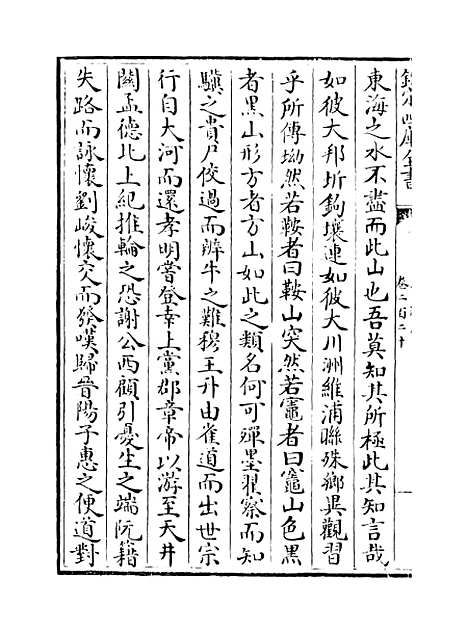 欽定四庫全書
卷二百二十
東海之水不盡而此山也吾莫知其所極此其知言哉
如彼大邦圻鉤壤連如彼大川洲維浦聯殊鄉異觀習
乎所傳坳然若鞍者曰鞍山突然若竈者曰竈山色黒
者黒山形方者方山如此之類名何可殫墨翟察而知
驥之貴尸佼過而辨牛之難穆王升由雀道而出世宗
行自大河而還孝明嘗登幸上黨郡章帝以游至天井
關孟德北上紀推輪之恐謝公西顧引憂生之端阮籍
失路而詠懷劉峻懷交而發嘆歸晉陽子惠之便道對